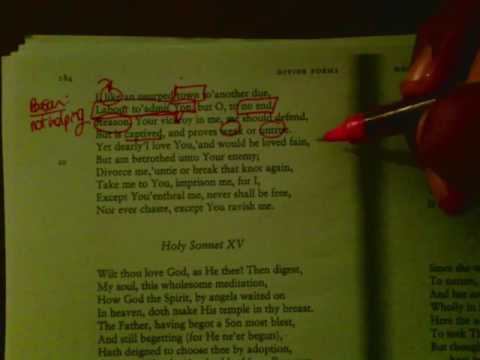 184 DIVINE POEMS
I, like an usurped town to'another due,
Labour to'admit You, but O, to no end,
Reason, Your viceroy in me, me should defend,
But is captived, and proves weak or untrue.
Yet dearly'I love You,'and would be loved fain,
But am betrothed unto Your enemy;
Divorce me,'untie or break that knot again,
Take me to You, imprison me, for I,
Except You'enthral me, never shall be free,
Nor ever chaste, except You ravish me.
Reason:
not helping
10
Holy Sonnet XV
Wilt thou love God, as He thee? Then digest,
My soul, this wholesome meditation,
How God the Spirit, by angels waited on
In heaven, doth make His temple in thy breast.
The Father, having begot a Son most blest,
And still begetting (for He ne'er begun),
Hath deigned to choose thee by adoption,
Since she
To nature,
And her
Wholly in
Here the
To seek
But though